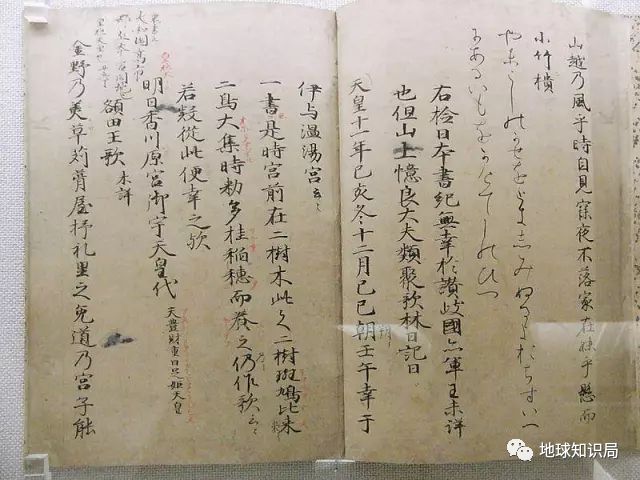 山越乃風乎時自見寐夜不落家在妹乎懸而
小竹樻
やまこしのかせをときしみぬるよおちすいへ
にあるいもをかけてしのひつ
右檢日本書紀無幸於讃岐國亦軍王未詳
也但山上憶良大夫類聚歌林曰記曰
天皇十一年己亥冬十二月己巳朔壬午幸于
伊与温湯宮云々
一書是時宮前在二樹木此之二樹斑鳩比米
二鳥大集時勅多桂稲穂而養之仍作歌云々
若疑從此便幸之歟
明日香川原宮御宇天皇代 天豊財重日足姫天皇
額田王歌 未詳
金野乃美草苅葺屋杼礼里之兎道乃宮子能
地球知识局